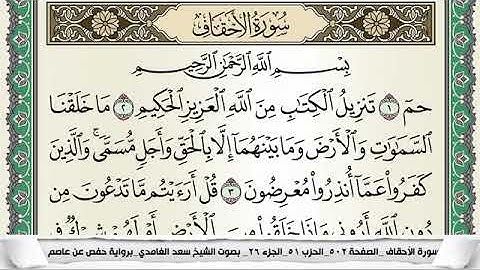 سُورَةُ الأَحْقَافِ
بِسْمِ اللَّهِ الرَّحْمَٰنِ الرَّحِيمِ
حمٓ ١ تَنزِيلُ الْكِتَٰبِ مِنَ اللَّهِ الْعَزِيزِ الْحَكِيمِ ٢ مَا خَلَقْنَا
السَّمَٰوَٰتِ وَالْأَرْضَ وَمَا بَيْنَهُمَآ إِلَّا بِالْحَقِّ وَأَجَلٍ مُّسَمًّى ۚ وَالَّذِينَ
كَفَرُوا عَمَّآ أُنذِرُوا مُعْرِضُونَ ٣ قُلْ أَرَءَيْتُم مَّا تَدْعُونَ مِن
دُونِ اللَّهِ أَرُونِي مَاذَا خَلَقُوا مِنَ الْأَرْضِ أَمْ لَهُمْ شِرْكٌ فِي
سورة الأحقاف _الصفحة ٥٠٢_ الحزب ٥١_ الجزء ٢٦_ بصوت الشيخ سعد الغامدي_برواية حفص عن عاصم